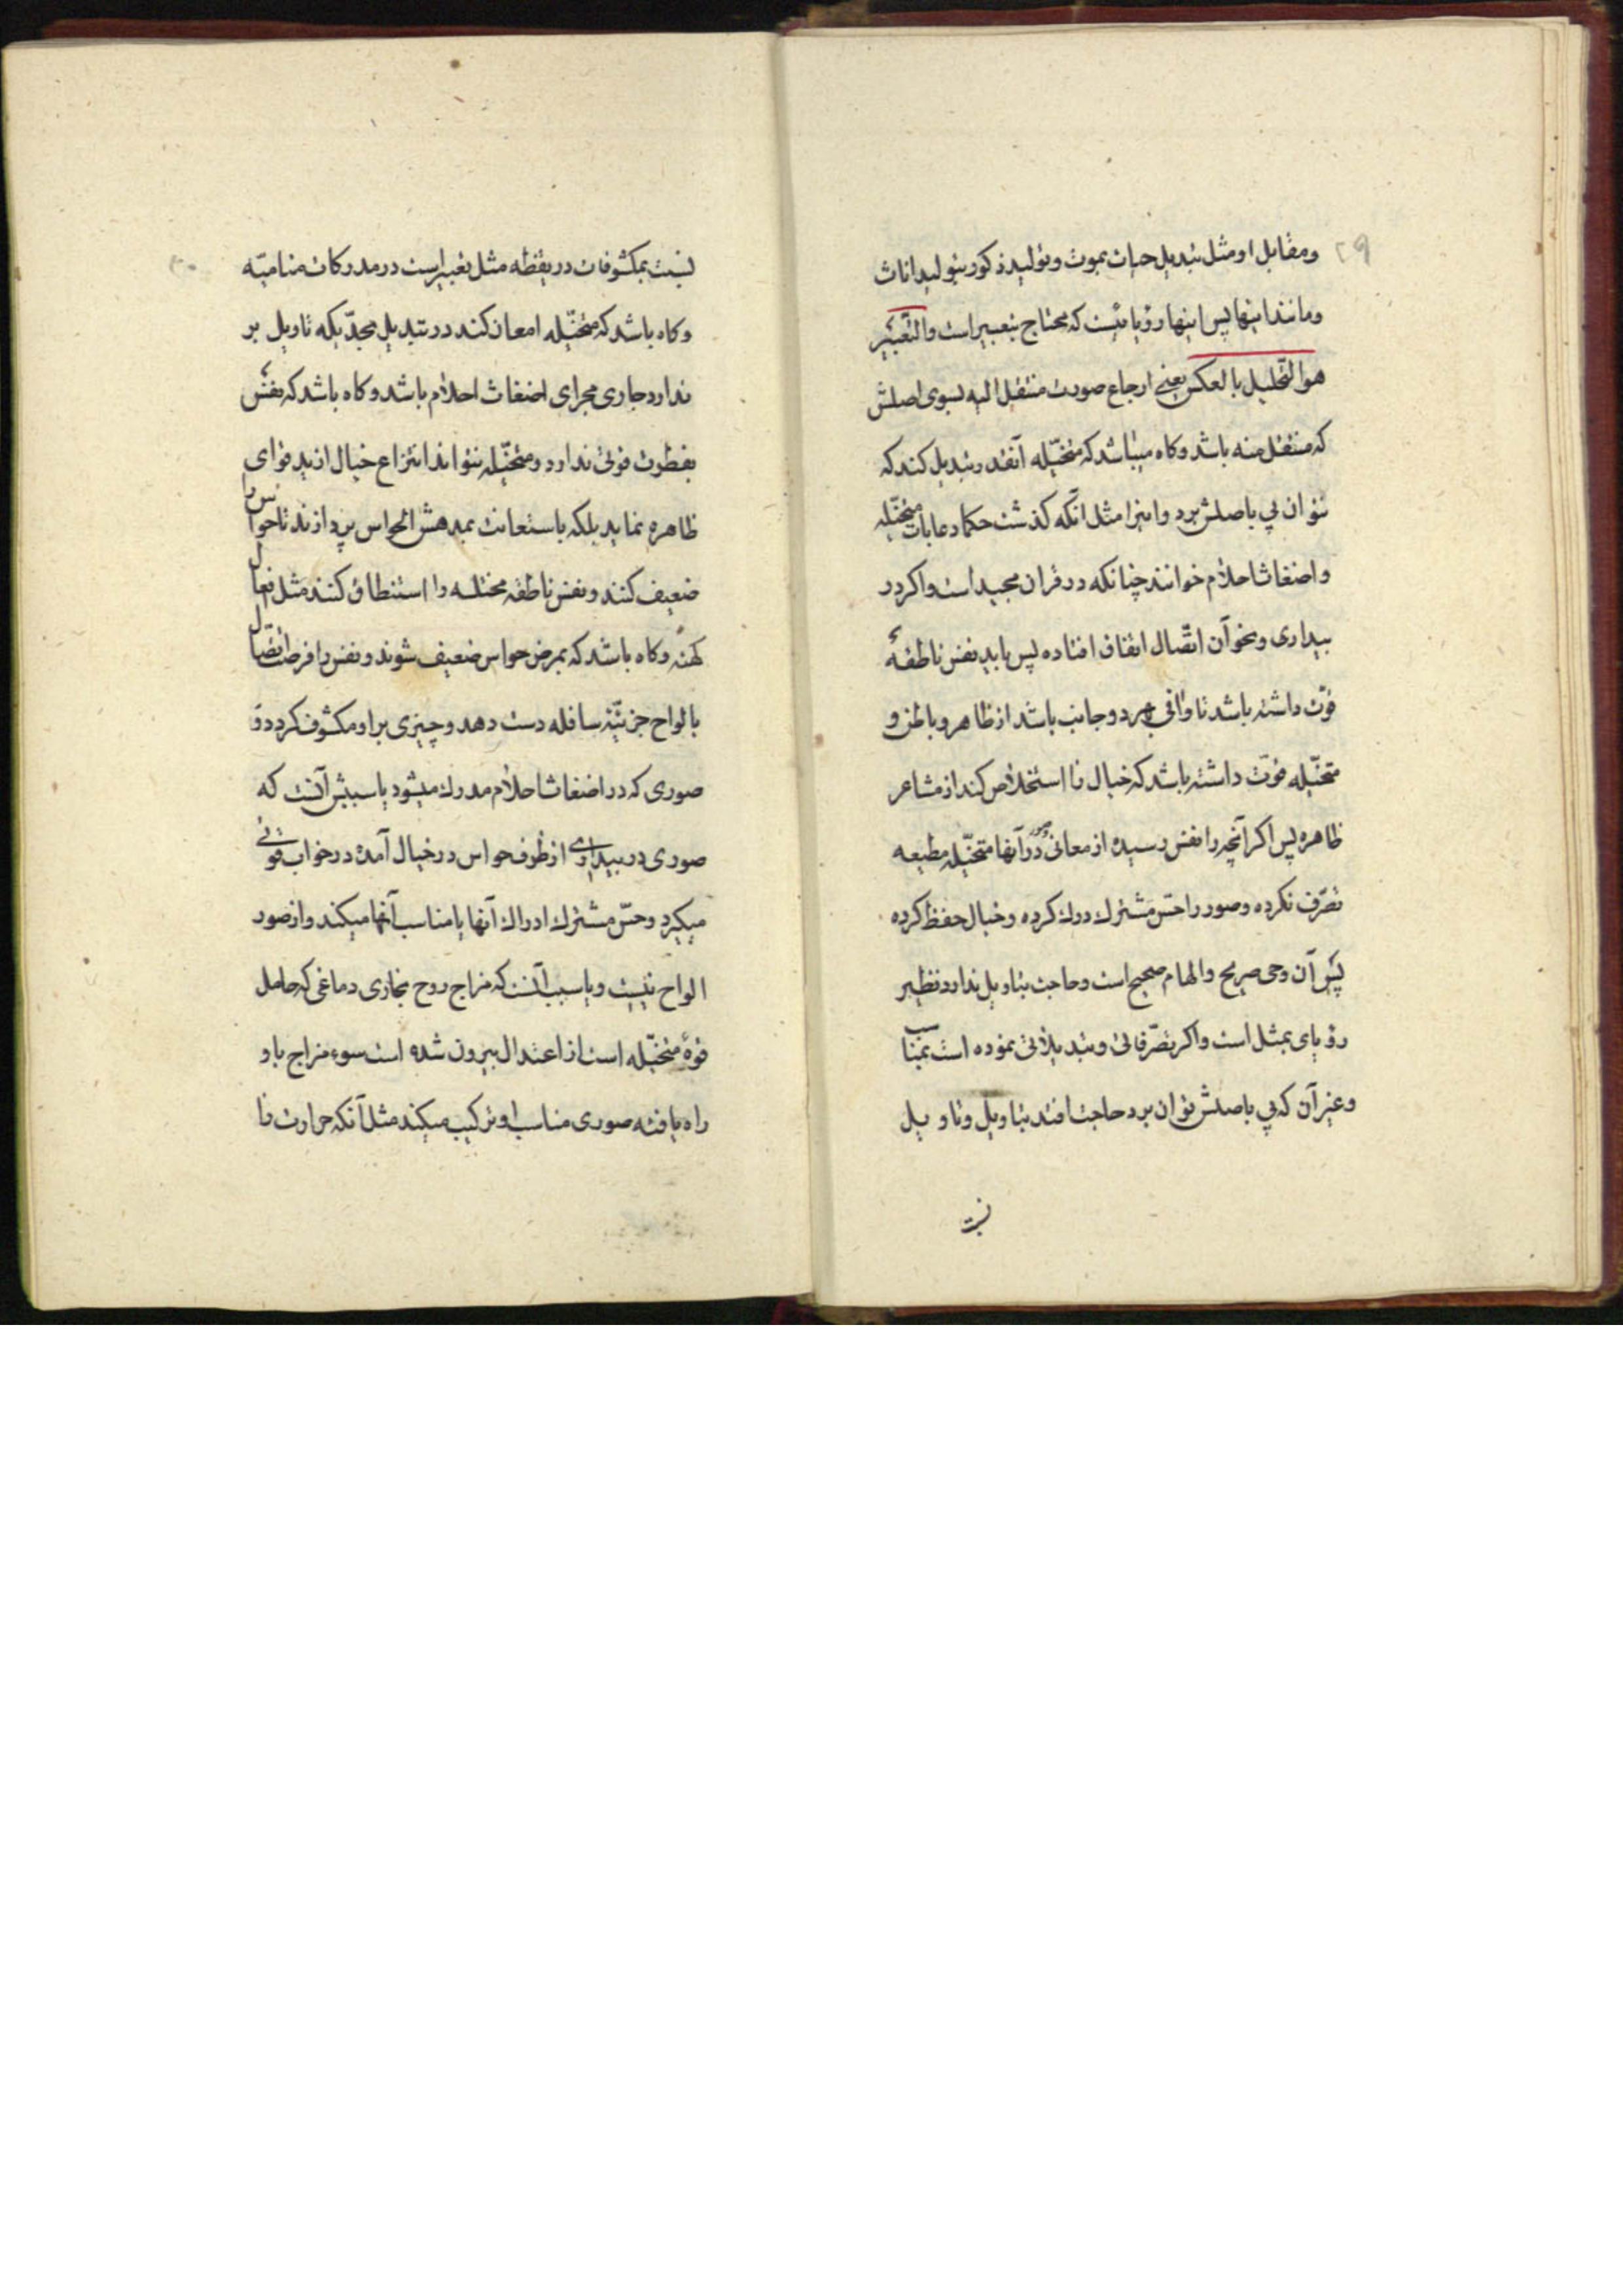 ۲۹
ومقابل او مثل تبدیل حیات بموت وتولید ذکور بتولید اناث
ومانند اینها پس اینها رؤیائیست که محتاج بتعبیر است والتعبیر
هو التحلیل بالعکس یعنی ارجاع صورت منتقل الیه بسوی اصلش
که منتقل منه باشد وکاه میباشد که متخیّله آنقدر تبدیل کند که
نتوان پی باصلش برد واینرا مثل آنکه کذشت حکما دعابات متخیّله
واضغاث احلام خوانند چنانکه در قران مجید است واکر در
بیداری ونحو آن اتّصال اتفاق افتاده پس باید نفس ناطقهٔ
قوّت داشته باشد تا وافی بهر دو جانب باشد از ظاهر وباطن و
متخیّله قوّت داشته باشد که خیال را استخلاص کند از مشاعر
ظاهره پس اکر آنچه را نفس رسیده از معانی وصور در آنها متخیّله مطیعه
تصّرف نکرده وصور را حسّ مشترك درك کرده وخیال حفظ کرده
پس آن وحی صریح والهام صحیح است وحاجت بتاویل ندارد نظیر
رؤیای بمثل است واکر تصّرفاتی وتبدیلاتی نموده است بمناسب
وغیر آن که پی باصلش توان برد حاجت افتد بتاویل وتاویل
نسبت
۳۰
نسبت بمکشوفات در یقظه مثل تعبیر است در مدرکات منامیّه
وکاه باشد که متخیّله امعان کند در تبدیل بحدّیکه تاویل بر
ندارد جاری مجرای اضغاث احلام باشد وکاه باشد که نفس
بفطرت قوتی ندارد ومتخیّله نتواند انتزاع خیال از ید قوای
ظاهره نماید بلکه باستعانت بمدهش الحواس پردازند تا حواس
ضعیف کنند ونفس ناطقه مختله را استنطاق کنند مثل فعال
کهنه وکاه باشد که بمرض حواس ضعیف شوند ونفس را فرصت اتصال
بالواح جزئیّهٔ سافله دست دهد وچیزی بر او مکشوف کردد و
صوری که در اضغاث احلام مدرك میشود یا سببش آنست که
صوری در بیداری از طرف حواس در خیال آمده در خواب قوتی
میکیرد وحسّ مشترك ادراك آنها یا مناسب آنها میکند واز صور
الواح نیست ویا سبب آنست که مزاج روح بخاری دماغی که حامل
قوهٔ متخیّله است از اعتدال بیرون شده است سوء مزاج باو
راه یافته صوری مناسب او ترکیب میکند مثل آنکه حرارت را